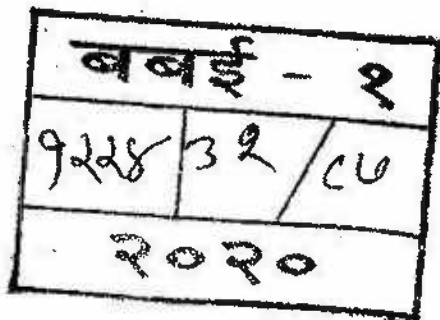 बबई - १
१२२४ ३२ / ८७
२०२०